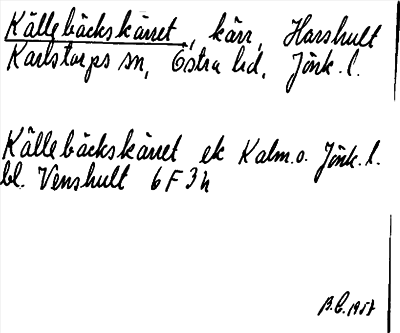 Källebäckskärret, kärr, Harshult
Karlstorps sn, Östra hd, Jönk. l.
Källebäckskärret ek Kalm. o. Jönk. l.
bl. Venshult 6 F 3 h
B.E. 1957